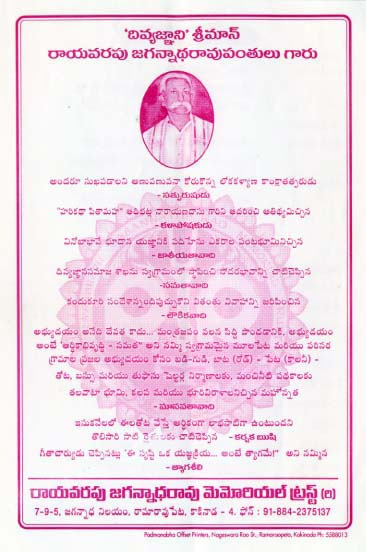 'దివ్యజ్ఞాని' శ్రీమాన్
రాయవరపు జగన్నాధరావుపంతులు గారు
అందరూ సుఖపడాలని అణువణువునా కోరుకొన్న లోకకళ్యాణ కాంక్షాతత్పరుడు
- సత్పురుషుడు
"హరికథా పితామహ" ఆదిభట్ల నారాయణదాసు గారిని ఆదరించి ఆతిధ్యమిచ్చిన
- కళాపోషకుడు
వినోబాభావే భూదాన యజ్ఞానికి పదిహేను ఎకరాల పంటభూమినిచ్చిన
- జాతీయతావాది
దివ్యజ్ఞానసమాజ శాఖను స్వగ్రామంలో స్థాపించి సోదరభావాన్ని చాటిచెప్పిన
- సమతావాది
కందుకూరి సందేశాన్నందిపుచ్చుకొని వితంతు వివాహాన్ని జరిపించిన
- లౌకికవాది
అభ్యుదయం అనేది దేవత కాదు... మంత్రజపం వలన సిద్ధి పొందడానికి, అభ్యుదయం
అంటే 'ఆర్థికాభివృద్ధి - సమత' అని నమ్మి స్వగ్రామమైన మూలపేట మరియు పరిసర
గ్రామాల ప్రజల అభ్యుదయం కోసం బడి-గుడి, బాట (రోడ్) - పేట (కాలనీ) -
తోట, బస్సు మరియు తుఫాను షెల్టర్ల నిర్మాణాలకు, మంచినీటి పథకాలకు
తలవాటా భూమి, కలప మరియు భూరివిరాళాలనిచ్చిన మహోన్నత
- మానవతావాది
ఇసుకనేలలో ఈతతోట వేస్తే ఆర్థికంగా లాభసాటిగా ఉంటుందని
తొలిసారి సాటి రైతులకు చాటిచెప్పిన - కర్షక ఋషి
గీతాచార్యుడు చెప్పినట్లు 'ఈ సృష్టి ఒక యజ్ఞక్రియ... అంటే త్యాగమే!' అని నమ్మిన
- త్యాగశీలి
రాయవరపు జగన్నాధరావు మెమోరియల్ ట్రస్ట్ (రి)
7-9-5, జగన్నాధ నిలయం, రామారావుపేట, కాకినాడ - 4. ఫోన్ : 91-884-2375137
Padmanabha Offset Printers, Nageswara Rao St., Ramaraopeta, Kakinada Ph: 5588013